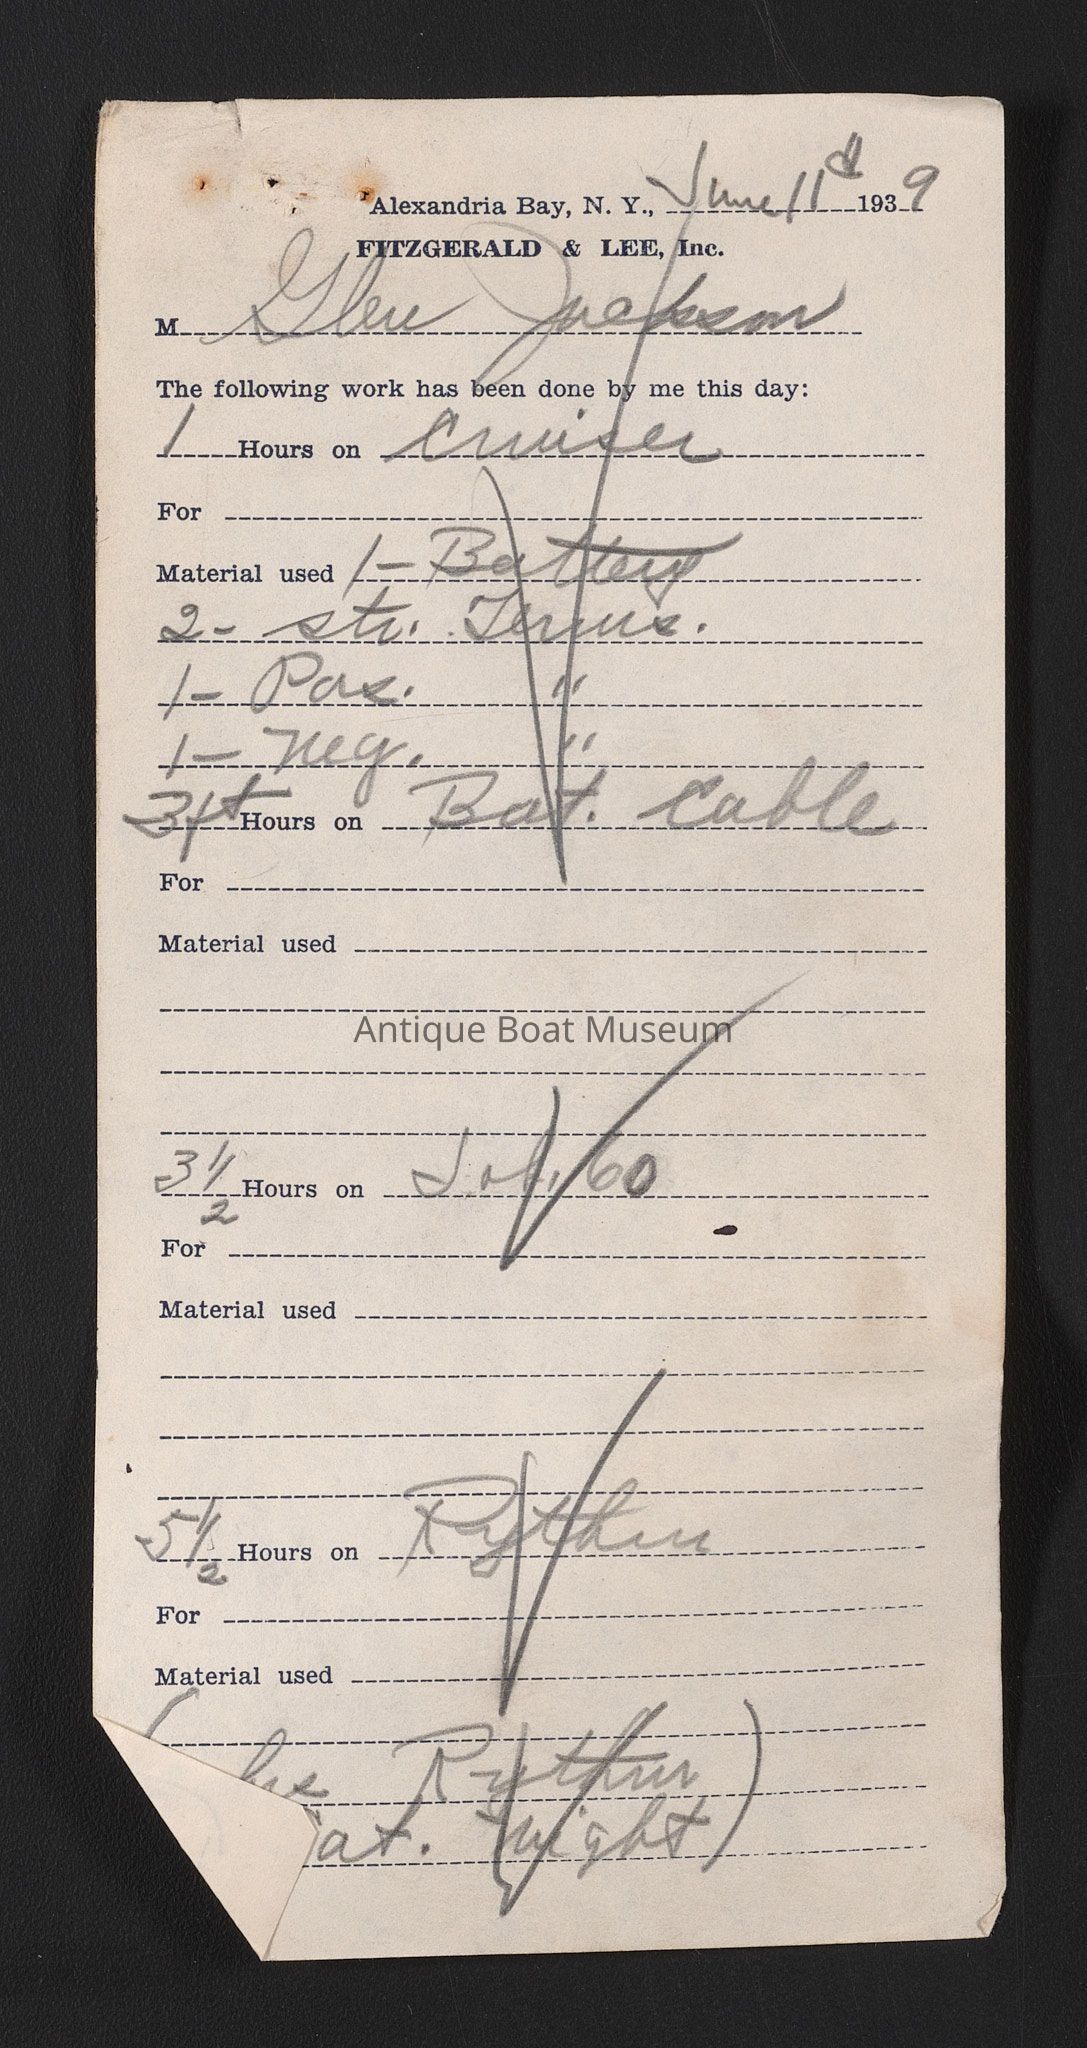 Alexandria Bay, N. Y., June 11th 1939
FITZGERALD & LEE, Inc.
M Glen Jackson
The following work has been done by me this day:
1 Hours on Cruiser
For
Material used 1- Battery
2- str. Terms.
1- Pos. "
1- Neg. "
3ft Hours on Bat. Cable
For
Material used
Antique Boat Museum
3 1/2 Hours on Job 60
For
Material used
5 1/2 Hours on Rythm
For
Material used
( hrs Rythm
at. Night)